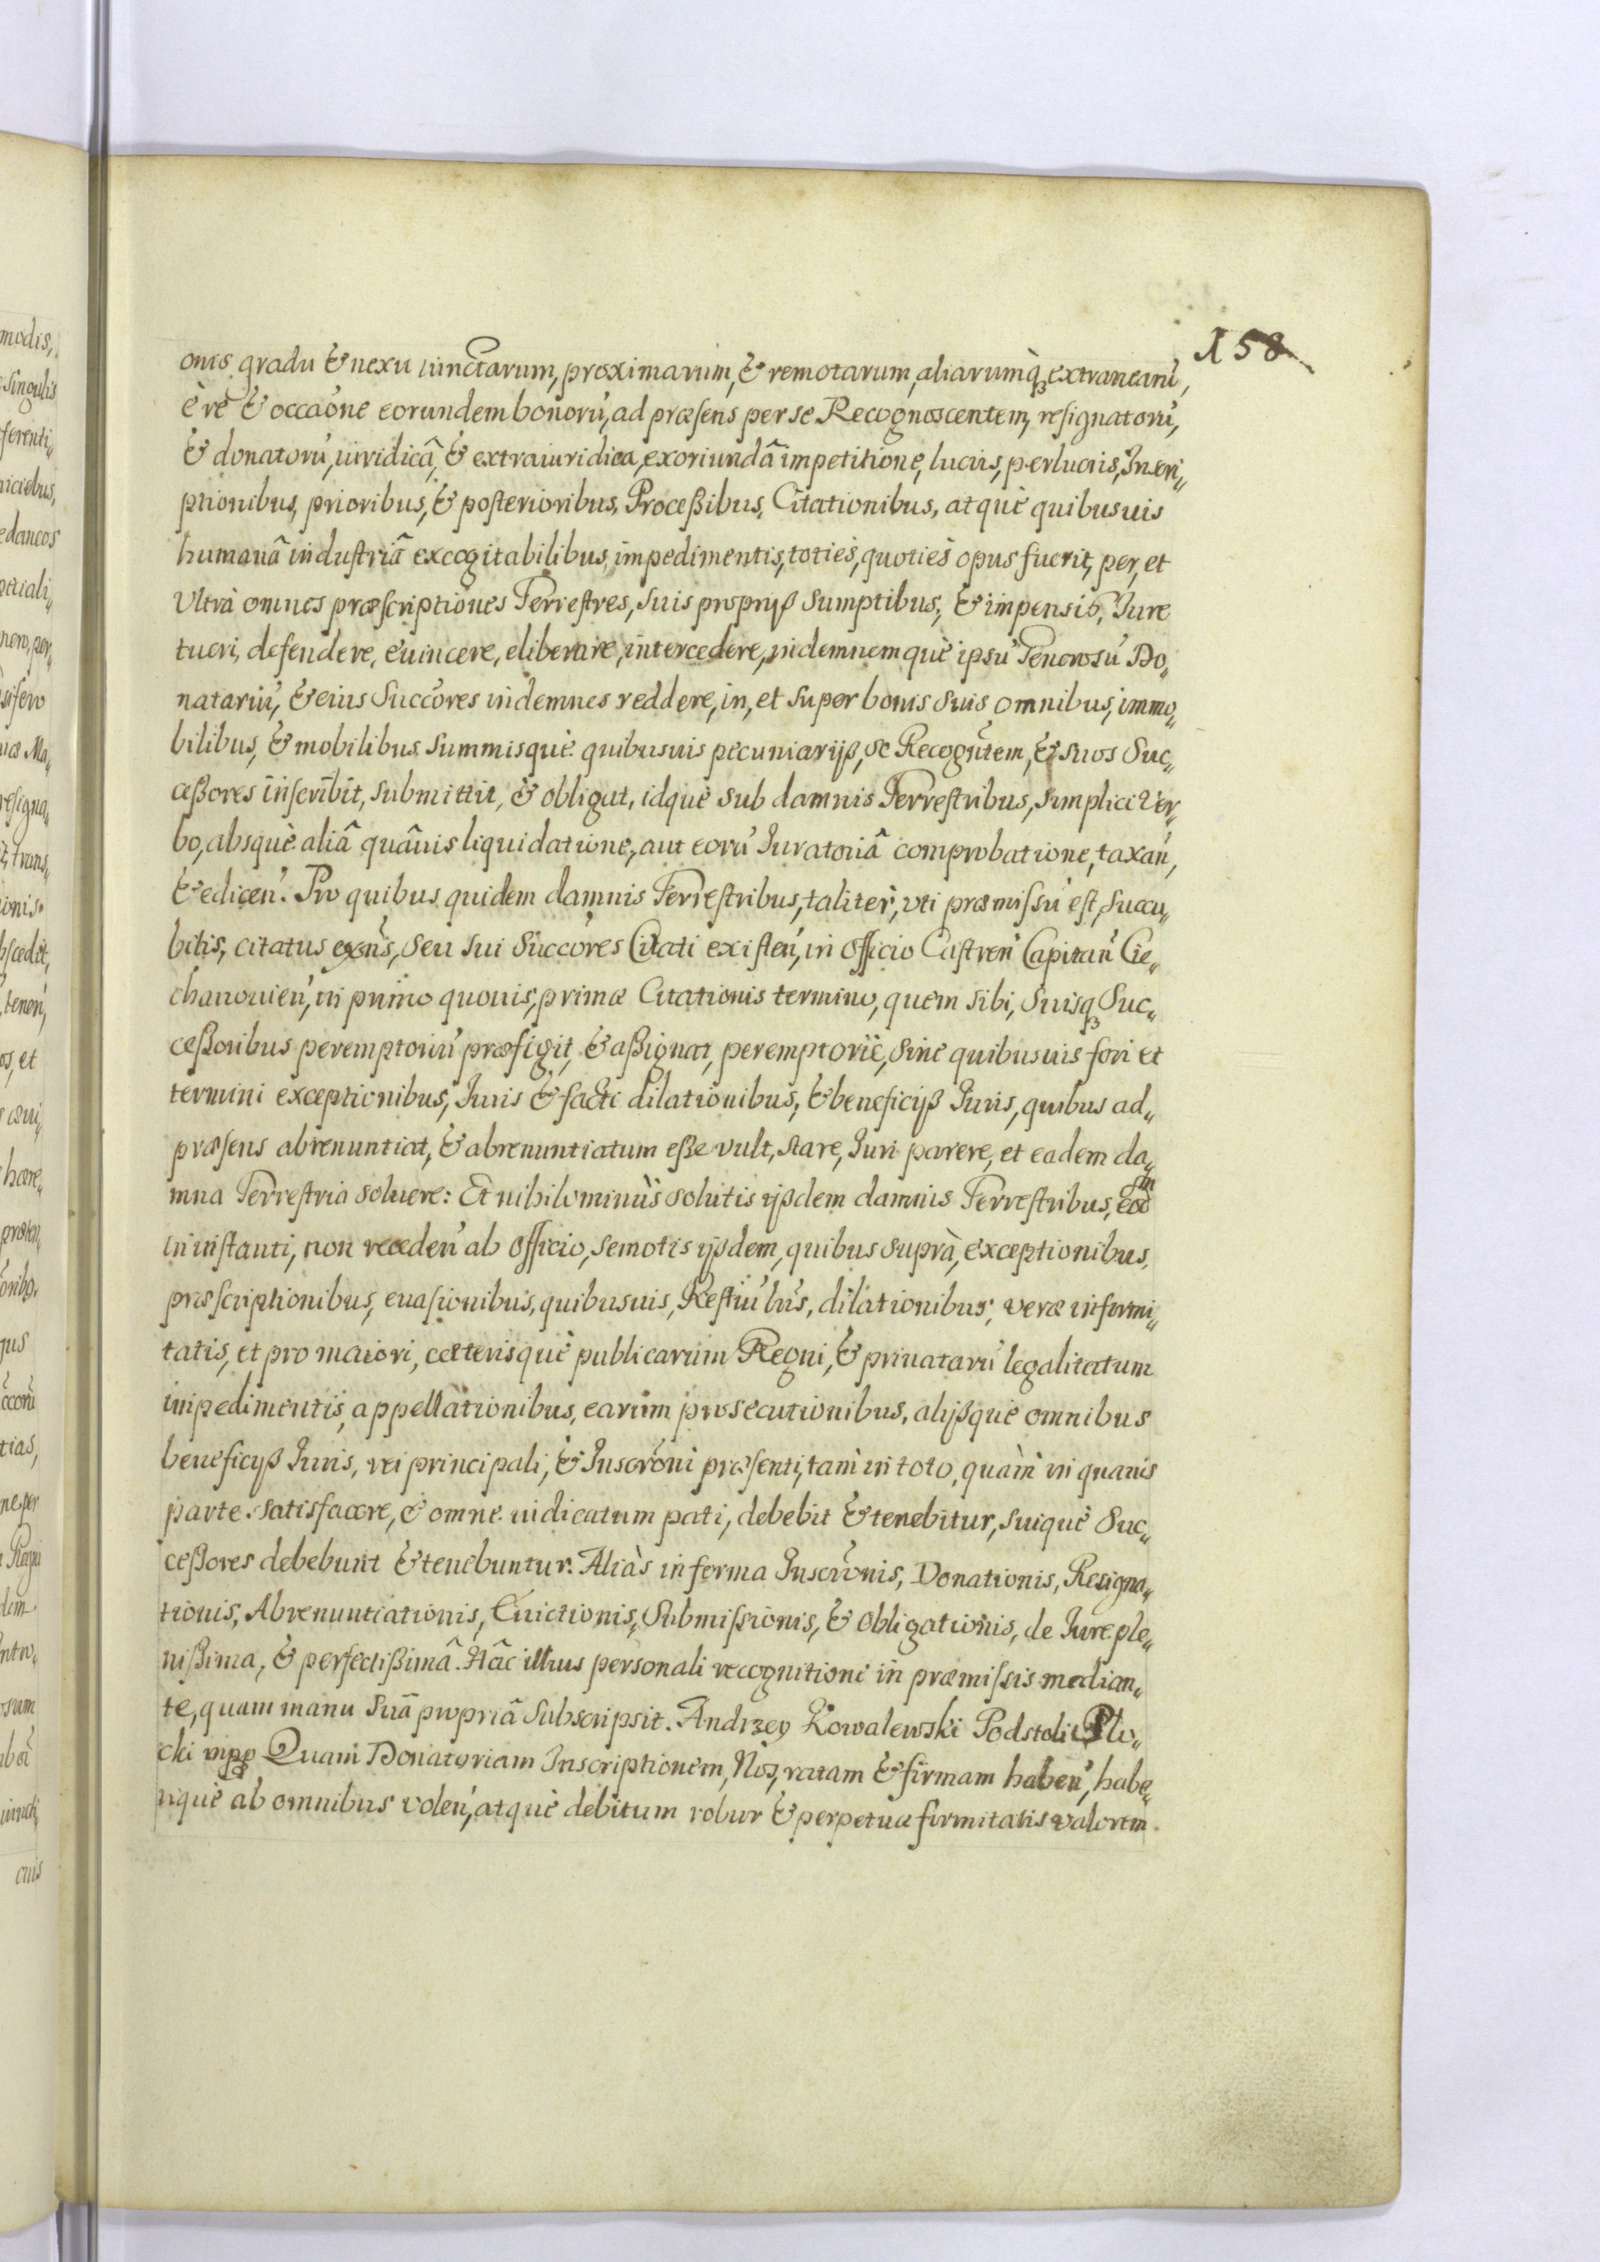 158
onis gradu & nexu iunctarum, proximarum, & remotarum, aliarumq3 extranearũ,
è re & occaõne eorundem bonorũ, ad præsens per se Recognoscentem, resignatorũ,
& donatorũ, iuridicâ, & extraiuridica, exoriundâ impetitione, lucris, perlucris, Inscri„
ptionibus, prioribus, & posterioribus, Proceßibus, Citationibus, atquè quibusuis
humanâ industriâ excogitabilibus, impedimentis, toties, quoties opus fuerit, per, et
Vltrà omnes præscriptiones Terrestres, suis proprijß sumptibus, & impensis, Iure
tueri, defendere, euincere, eliberare, intercedere, indemnemquè ipsũ Generosũ Do„
natariũ, & eius Succõres indemnes reddere, in, et super bonis suis omnibus, immo„
bilibus, & mobilibus summisquè quibusuis pecuniarijß, se Recognt̃em, & suos Suc„
ceßores inscribit, submittit, & obligat, idquè sub damnis Terrestribus, simplici Ver„
bo, absquè aliâ quâuis liquidatione, aut eorũ Iuratoriâ comprobatione, taxañ,
& ediceñ. Pro quibus quidem damnis Terrestribus, taliter, vti præmissũ est, succu„
bitis, citatus exñs, seu sui Succõres Citati existeñ, in Officio Castreñ Capitañ Cie„
chanouieñ, in primo quouis, primæ Citationis termino, quem sibi, suisq3 Suc„
ceßoribus peremptoriũ præfigit, & aßignat, peremptoriè, sine quibusuis fori et
termini exceptionibus, Iuris & facti dilationibus, & beneficijß Iuris, quibus ad„
præsens abrenuntiat, & abrenuntiatum eße vult, stare, Iuri parere, et eadem da„
mna Terrestria soluere: Et nihilominùs solutis ijsdem damnis Terrestribus,
in instanti, non recedeñ ab Officio, semotis ijsdem, quibus suprà, exceptionibus,
præscriptionibus, euasionibus, quibusuis, dilationibus, veræ infirmi„
tatis, et pro maiori, cæterisquè publicarum Regni, & priuatarũ legalitatum
impedimentis, appellationibus, earum prosecutionibus, alijßquè omnibus
beneficijß Iuris, rei principali, & Inscrõni præsenti, tam in toto, quàm in quauis
parte satisfacere, & omne iudicatum pati, debebit & tenebitur, suiquè Suc„
ceßores debebunt & tenebuntur. Aliàs in forma Inscrõnis, Donationis, Resigna„
tionis, Abrenuntiationis, Euictionis, Submissionis, & Obligationis, de Iure ple„
nißima, & perfectißimâ. Hâc illius personali recognitione in præmissis median„
te, quam manu Suâ propriâ Subscripsit. Andrzey Kowalewski Podstoli Plo„
cki mpp Quam Donatoriam Inscriptionem, Nos, ratam & firmam habeñ, habe„
riquè ab omnibus voleñ, atquè debitum robur & perpetuæ firmitatis valorem.